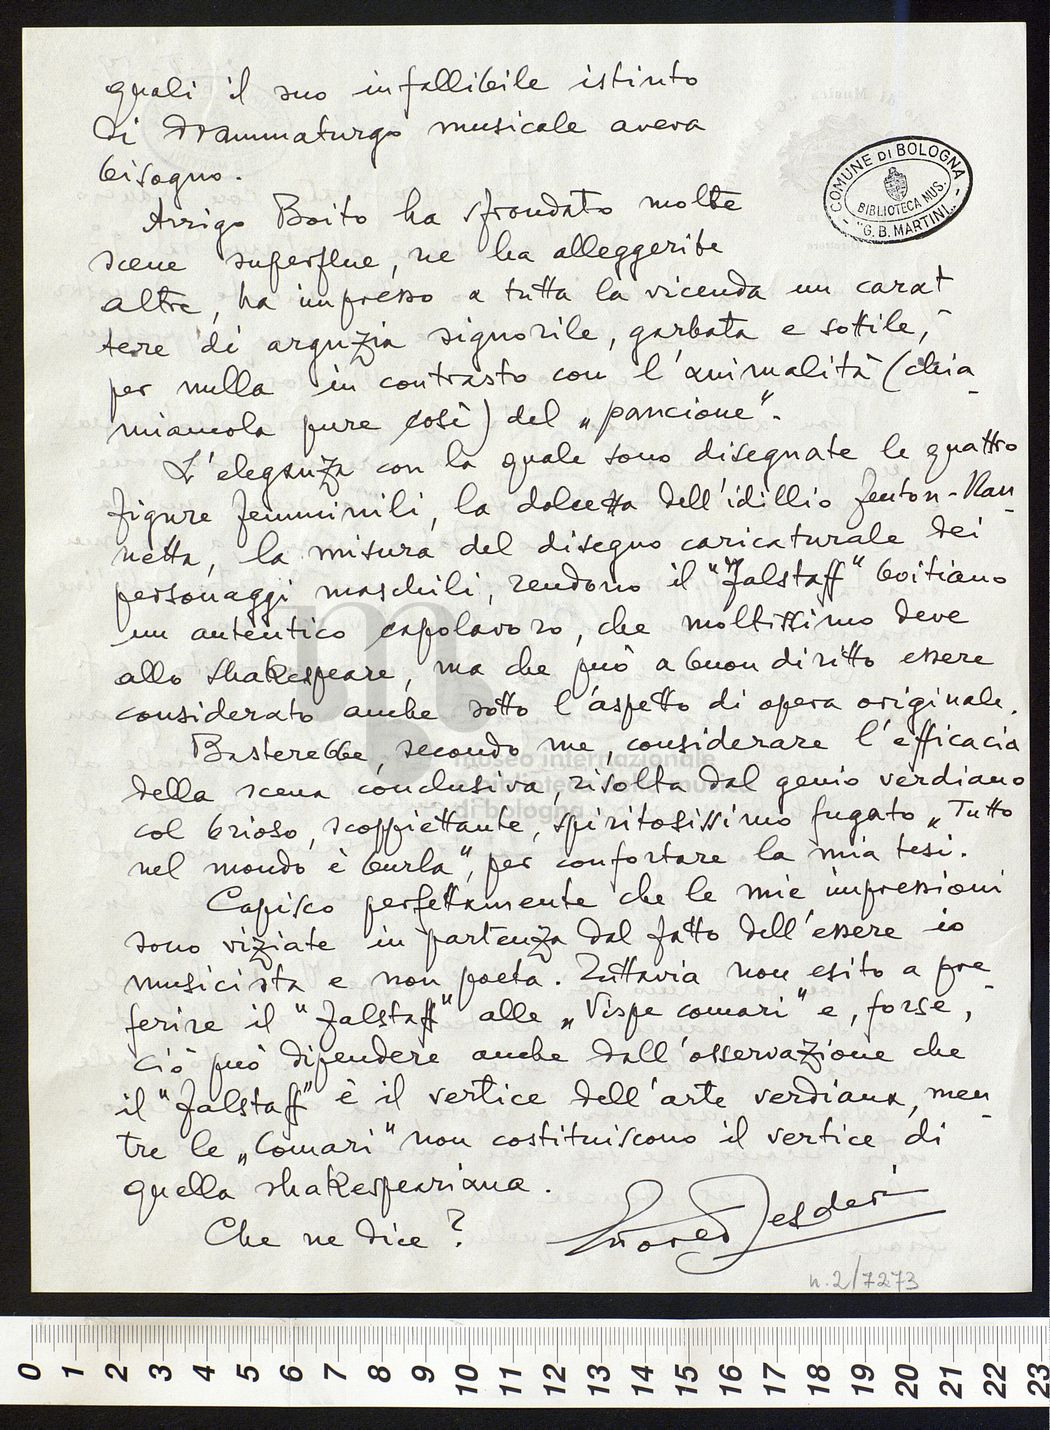 quali il suo infallibile istinto
di drammaturgo musicale aveva
bisogno.
COMUNE DI BOLOGNA
BIBLIOTECA MUS.
"G. B. MARTINI"
Arrigo Boito ha sfrondato molte
scene superflue, ne ha alleggerite
altre, ha impresso a tutta la vicenda un carat
tere di arguzia signorile, garbata e sottile,
per nulla in contrasto con l'animalità (chia-
miamola pure così) del „pancione".
L'eleganza con la quale sono disegnate le quattro
figure femminili, la dolcezza dell'idillio Fenton-Nan-
netta, la misura del disegno caricaturale dei
personaggi maschili, rendono il "Falstaff" boitiano
un autentico capolavoro, che moltissimo deve
allo Shakespeare, ma che può a buon diritto essere
considerato anche sotto l'aspetto di opera originale.
Basterebbe, secondo me, considerare l'efficacia
della scena conclusiva, risolta dal genio verdiano
col brioso, scoppiettante, spiritosissimo fugato „Tutto
nel mondo è burla", per confortare la mia tesi.
museo internazionale
e biblioteca della musica
di bologna
Capisco perfettamente che le mie impressioni
sono viziate in partenza dal fatto dell'essere io
musicista e non poeta. Tuttavia non esito a pre-
ferire il "Falstaff" alle „Vispe comari" e, forse,
ciò può dipendere anche dall'osservazione che
il "Falstaff" è il vertice dell'arte verdiana, men-
tre le „Comari" non costituiscono il vertice di
quella shakespeariana.
Che ne dice?
n. 2/7273
0 1 2 3 4 5 6 7 8 9 10 11 12 13 14 15 16 17 18 19 20 21 22 23